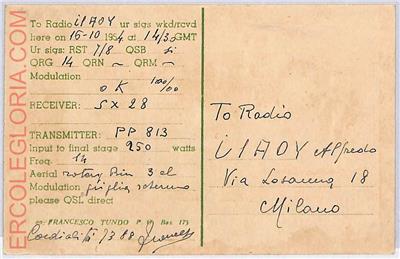 ERCOLEGLORIA.COM
To Radio i1AOY ur sigs wkd/rcvd
here on 16-10 1954 at 14/30 GMT
Ur sigs: RST 7/8 QSB si
QRG 14 QRN ~ QRM ~
Modulation 100/00
OK
RECEIVER: SX 28
TRANSMITTER: PP 813
Input to final stage 250 watts
Freq. 14
Aerial rotary 3 el
Modulation griglia schermo
please QSL direct
FRANCESCO TUNDO P. Box 173
Cordialità 73 88
To Radio
i1AOY Alfredo
Via Losanna 18
Milano